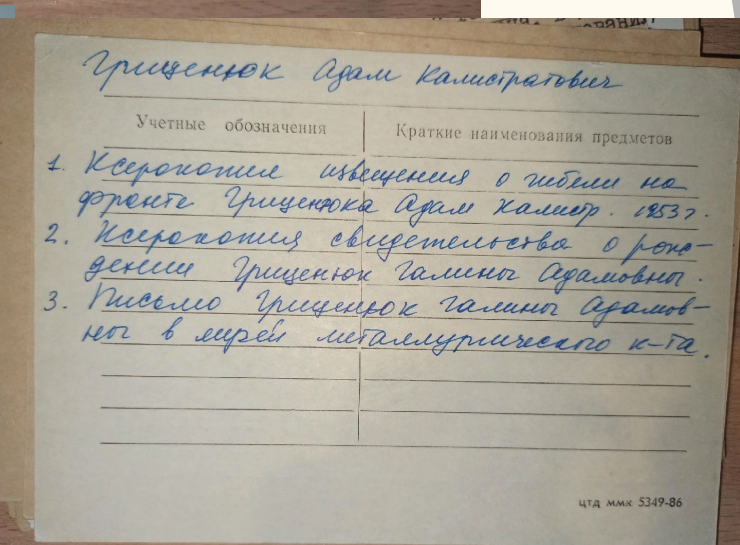 Гриценюк Адам Калистратович
Учетные обозначения Краткие наименования предметов
1. Ксерокопия извещения о гибели на
фронте Гриценюка Адам Калистр. 1953 г.
2. Ксерокопия свидетельства о рож-
дении Гриценюк Галины Адамовны.
3. Письмо Гриценюк Галины Адамов-
ны в музей металлургического к-та.
ЦТД ММК 5349-86